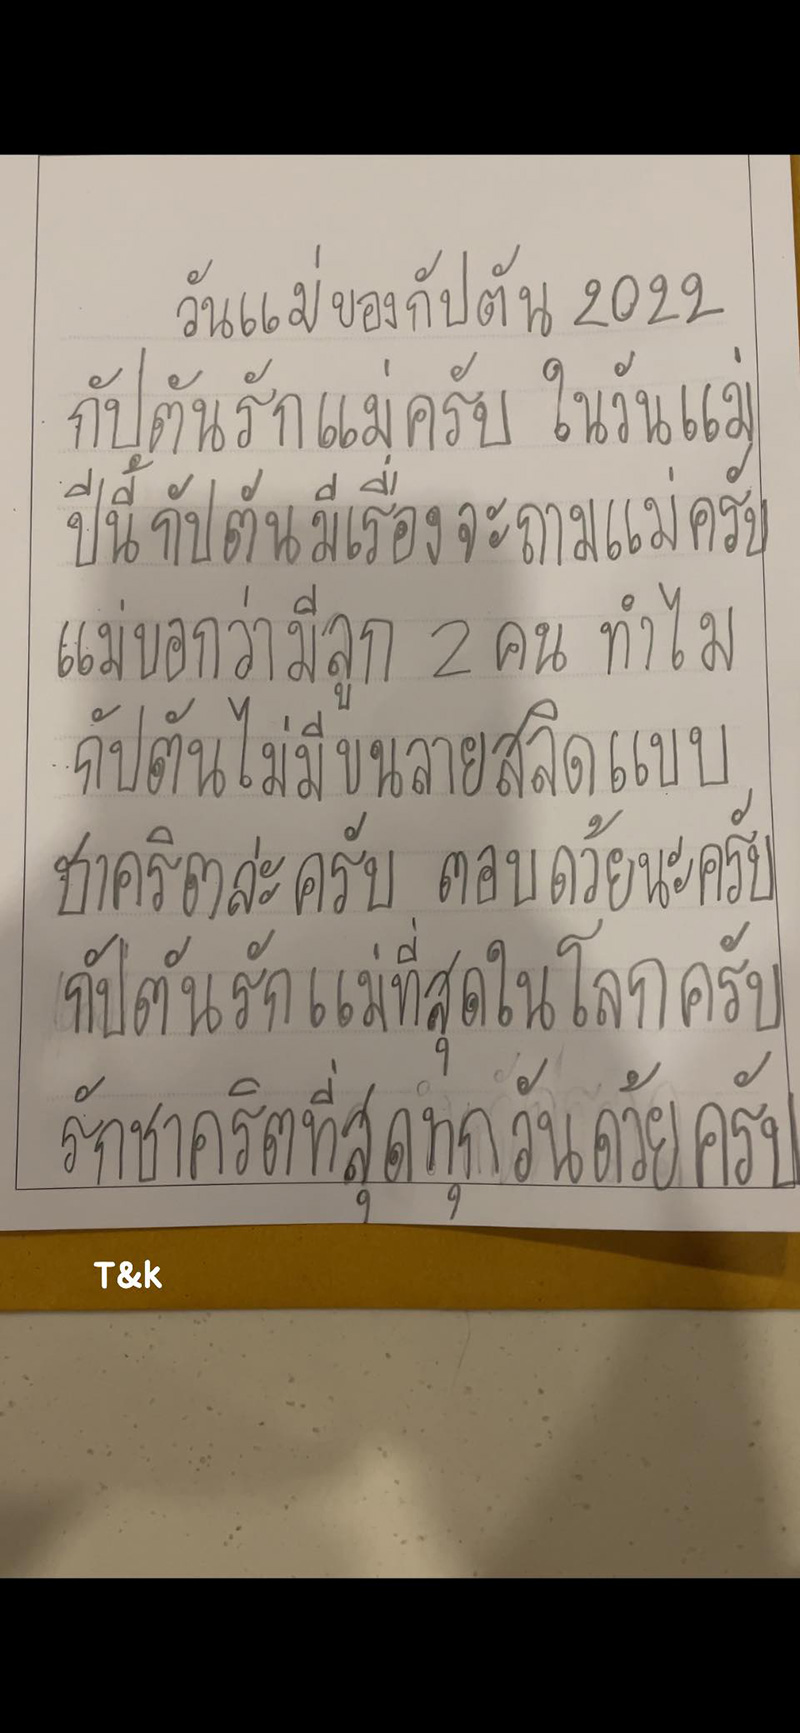 วันแม่ของกัปตัน 2022
กัปตันรักแม่ครับ ในวันแม่
ปีนี้กัปตันมีเรื่องจะถามแม่ครับ
แม่บอกว่ามีลูก 2 คน ทำไม
กัปตันไม่มีขนลายสลิดแบบ
ชาคริตล่ะครับ ตอบด้วยนะครับ
กัปตันรักแม่ที่สุดในโลกครับ
รักชาคริตที่สุดทุกวันด้วยครับ
T&k